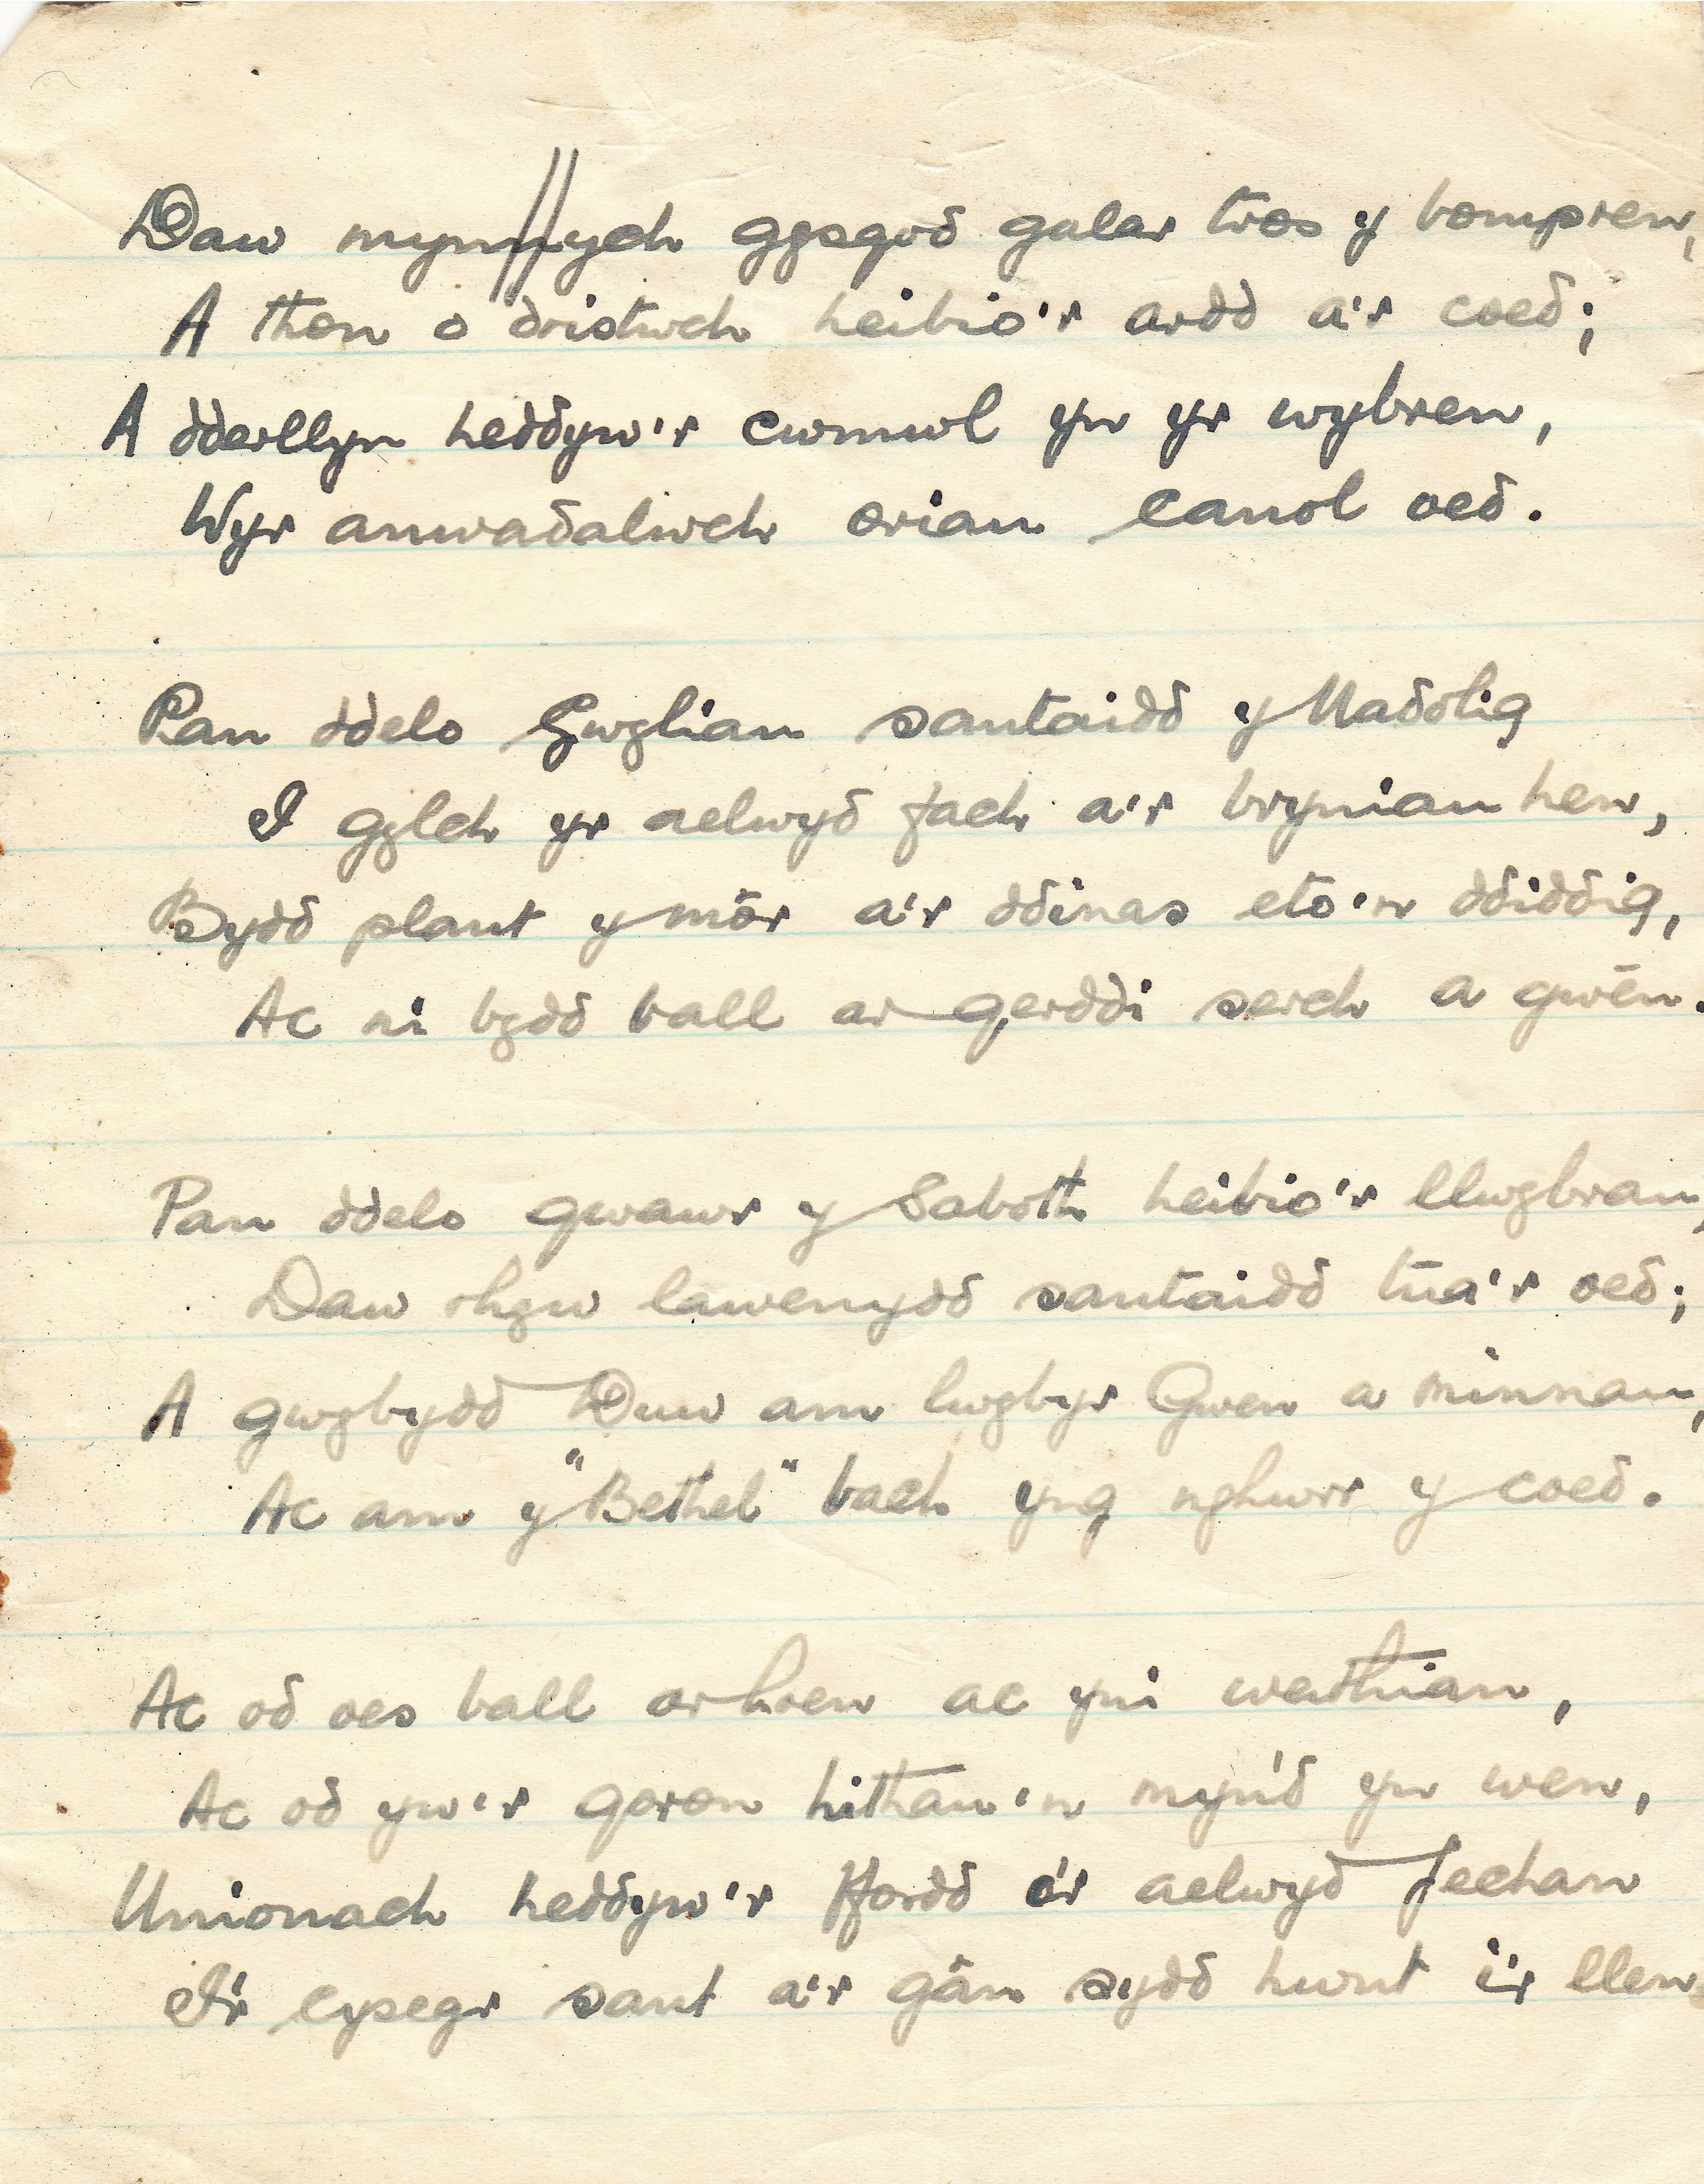 Daw mynnych gysgod galar tros y bompren,
A thon o dristwch heibio'r ardd a'r coed;
A dderllyn heddyw'r cwmwl yn yr wybren,
Wyr anwadalwch oriau canol oed.
Pan ddelo Gwyliau santaidd y Nadolig
I gylch yr aelwyd fach a'r bryniau hen,
Bydd plant y môr a'r ddinas eto'n ddiddig,
Ac ni bydd ball ar gerddi serch a gwên.
Pan ddelo gwawr y Saboth heibio'r llwybrau,
Daw rhyw lawenydd santaidd tua'r oed;
A gwybydd Duw am lwybyr Gwen a minnau,
Ac am y "Bethel" bach yng nghwrr y coed.
Ac od oes ball ar hoen ac yni weithian,
Ac od yw'r goron hithau'n myn'd yn wen,
Unionach heddyw'r ffordd o'r aelwyd fechan
I'r cysegr sant a'r gân sydd hwnt i'r llen